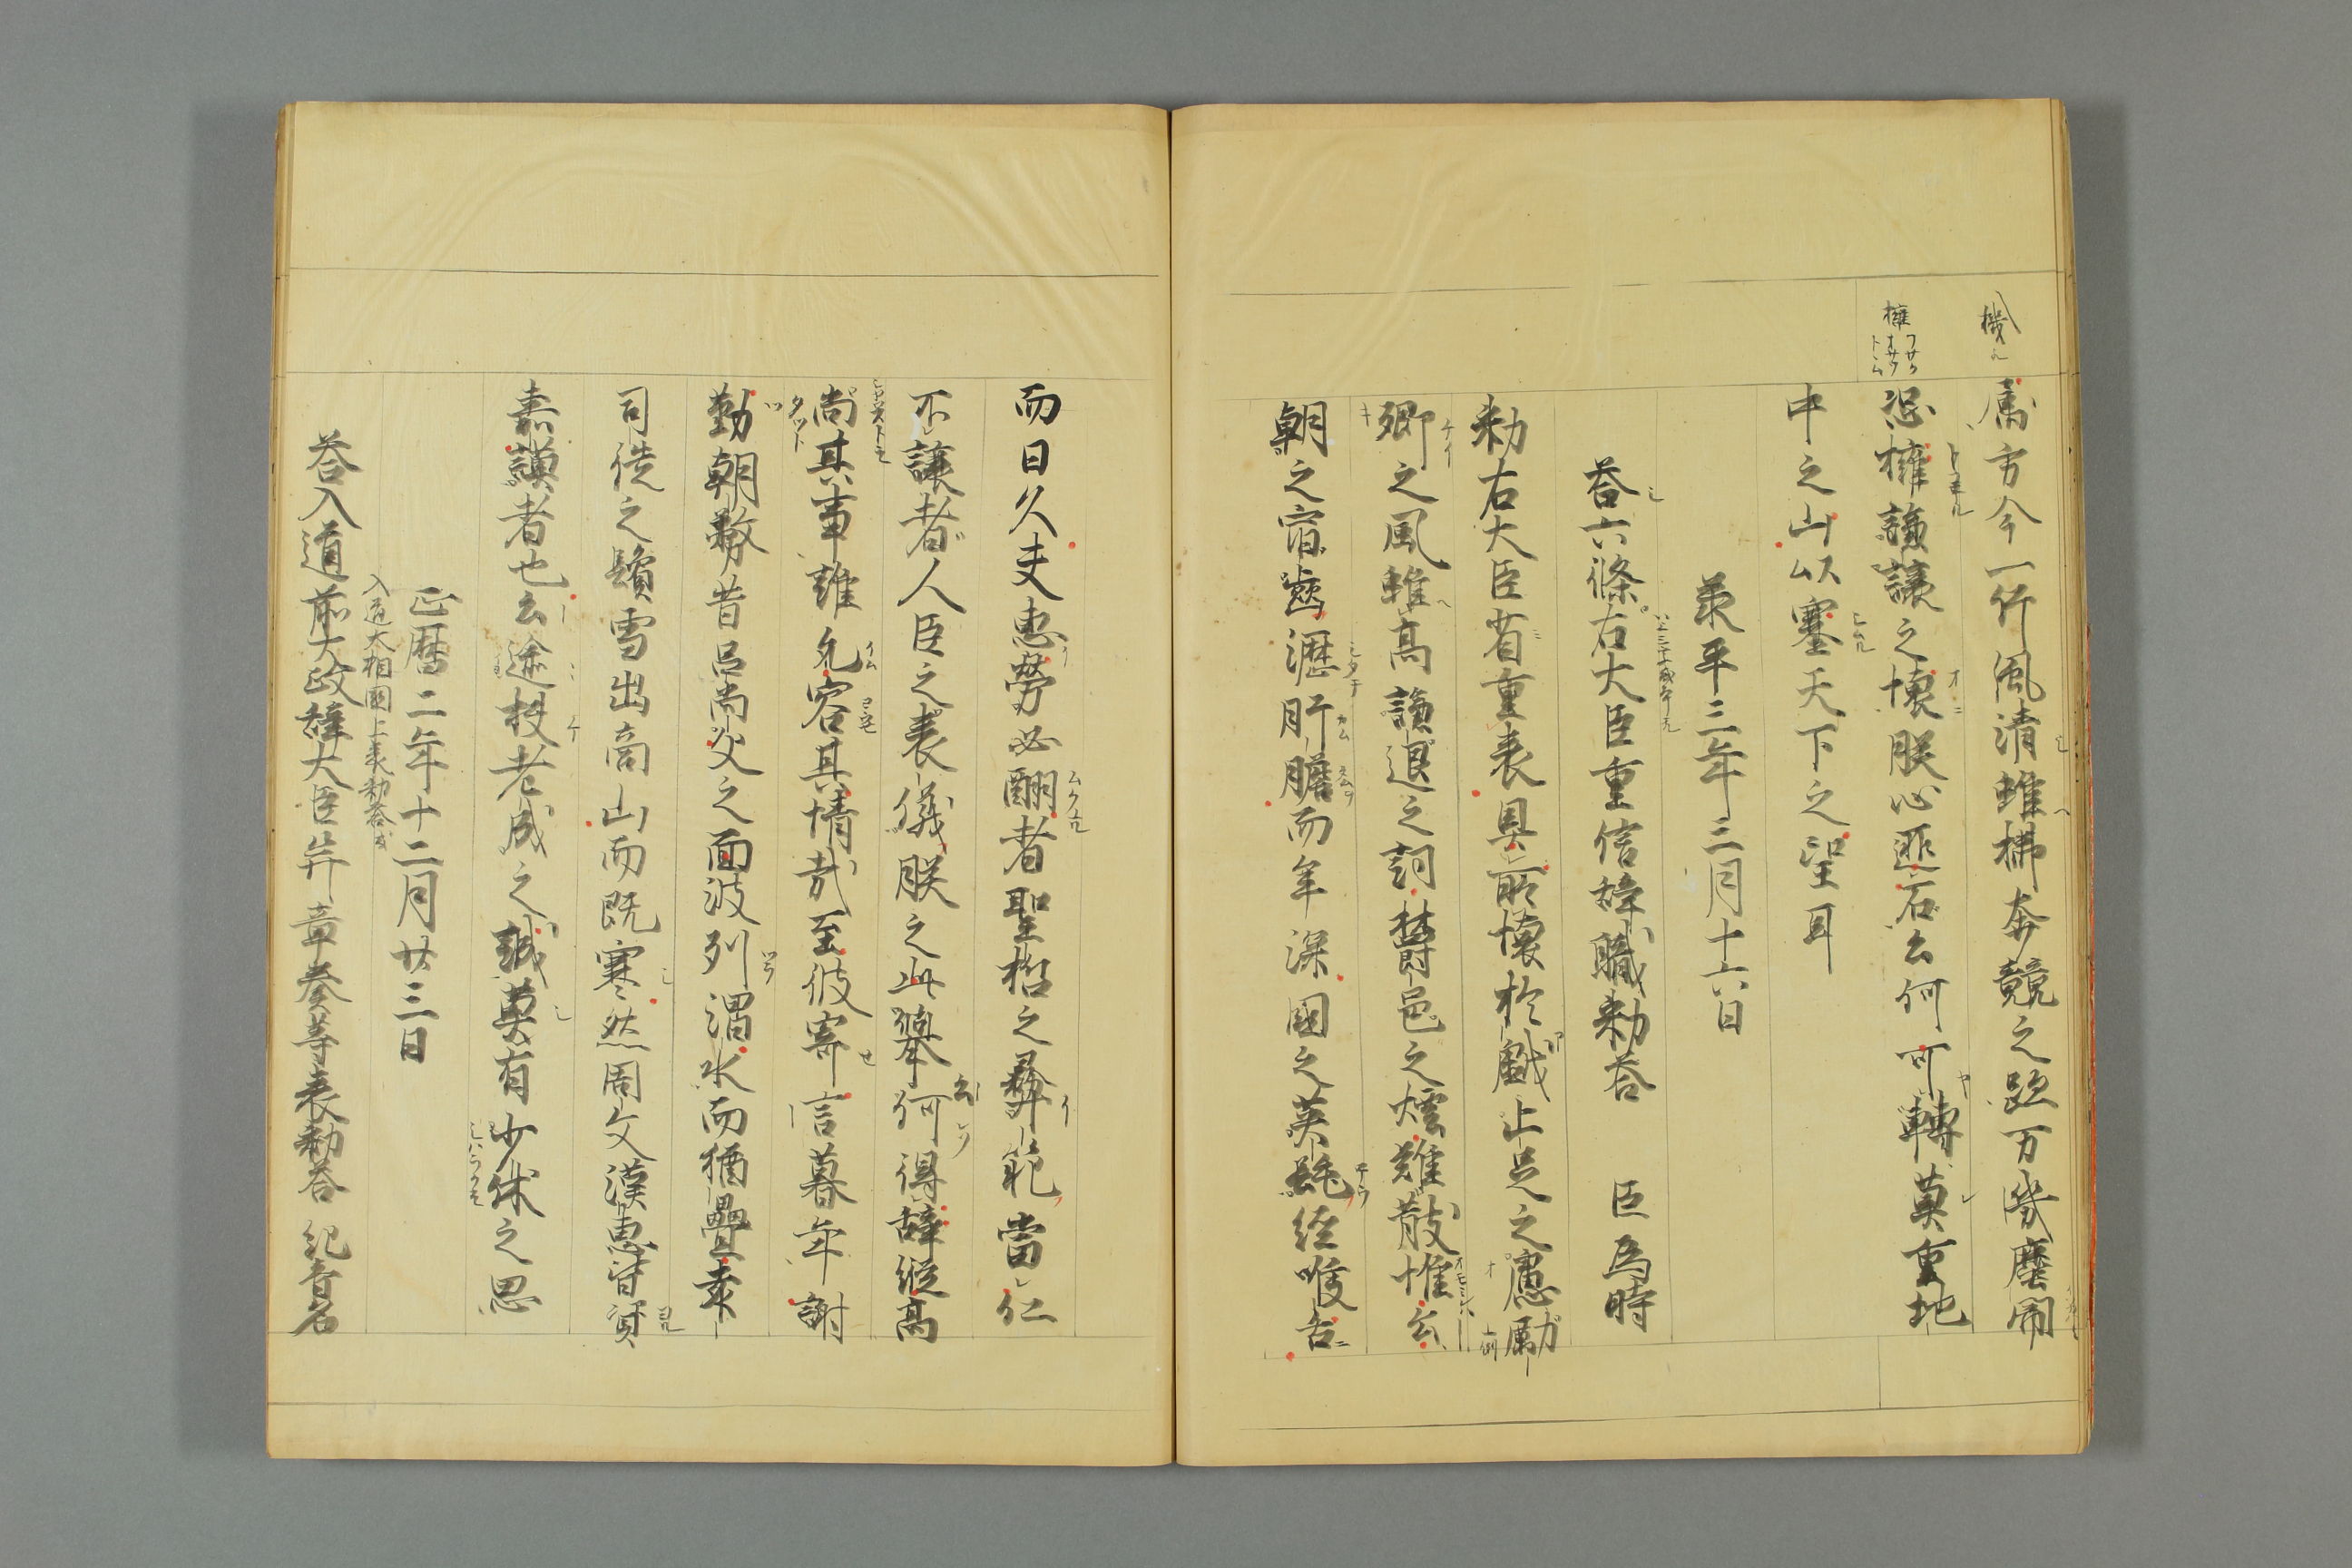 属方今一行風清雖拂奔競之跡万機塵閙
恐擁謙譲之懐朕心匪石云何可轉莫重地
中之山以塞天下之望耳
承平三年三月十六日
荅六條右大臣重信辞職勅荅 臣為時
勅右大臣省重表具所懐於戯止足之慮勵
郷之風雖高謙退之詞欝邑之燠難散惟公
朝之宿齒瀝肝膽而年深國之英髦経喉舌
而日久夫恵勞必酬者聖哲之彝範當仁
不讓者人臣之表儀朕之此舉何得辞縦高
尚其事誰允容其情哉至彼寄言暮年謝
勤朝務昔呂尚父之面波列渭水而猶疊乗
司徒之鬢雪出商山而既寒然周文漢恵皆賢
嘉謨者也云途杖老成之誠莫有少休之思
正暦二年十二月廿三日
入道太相國上表勅荅
荅入道前大政辞大臣并章奏等表勅荅 紀斉名